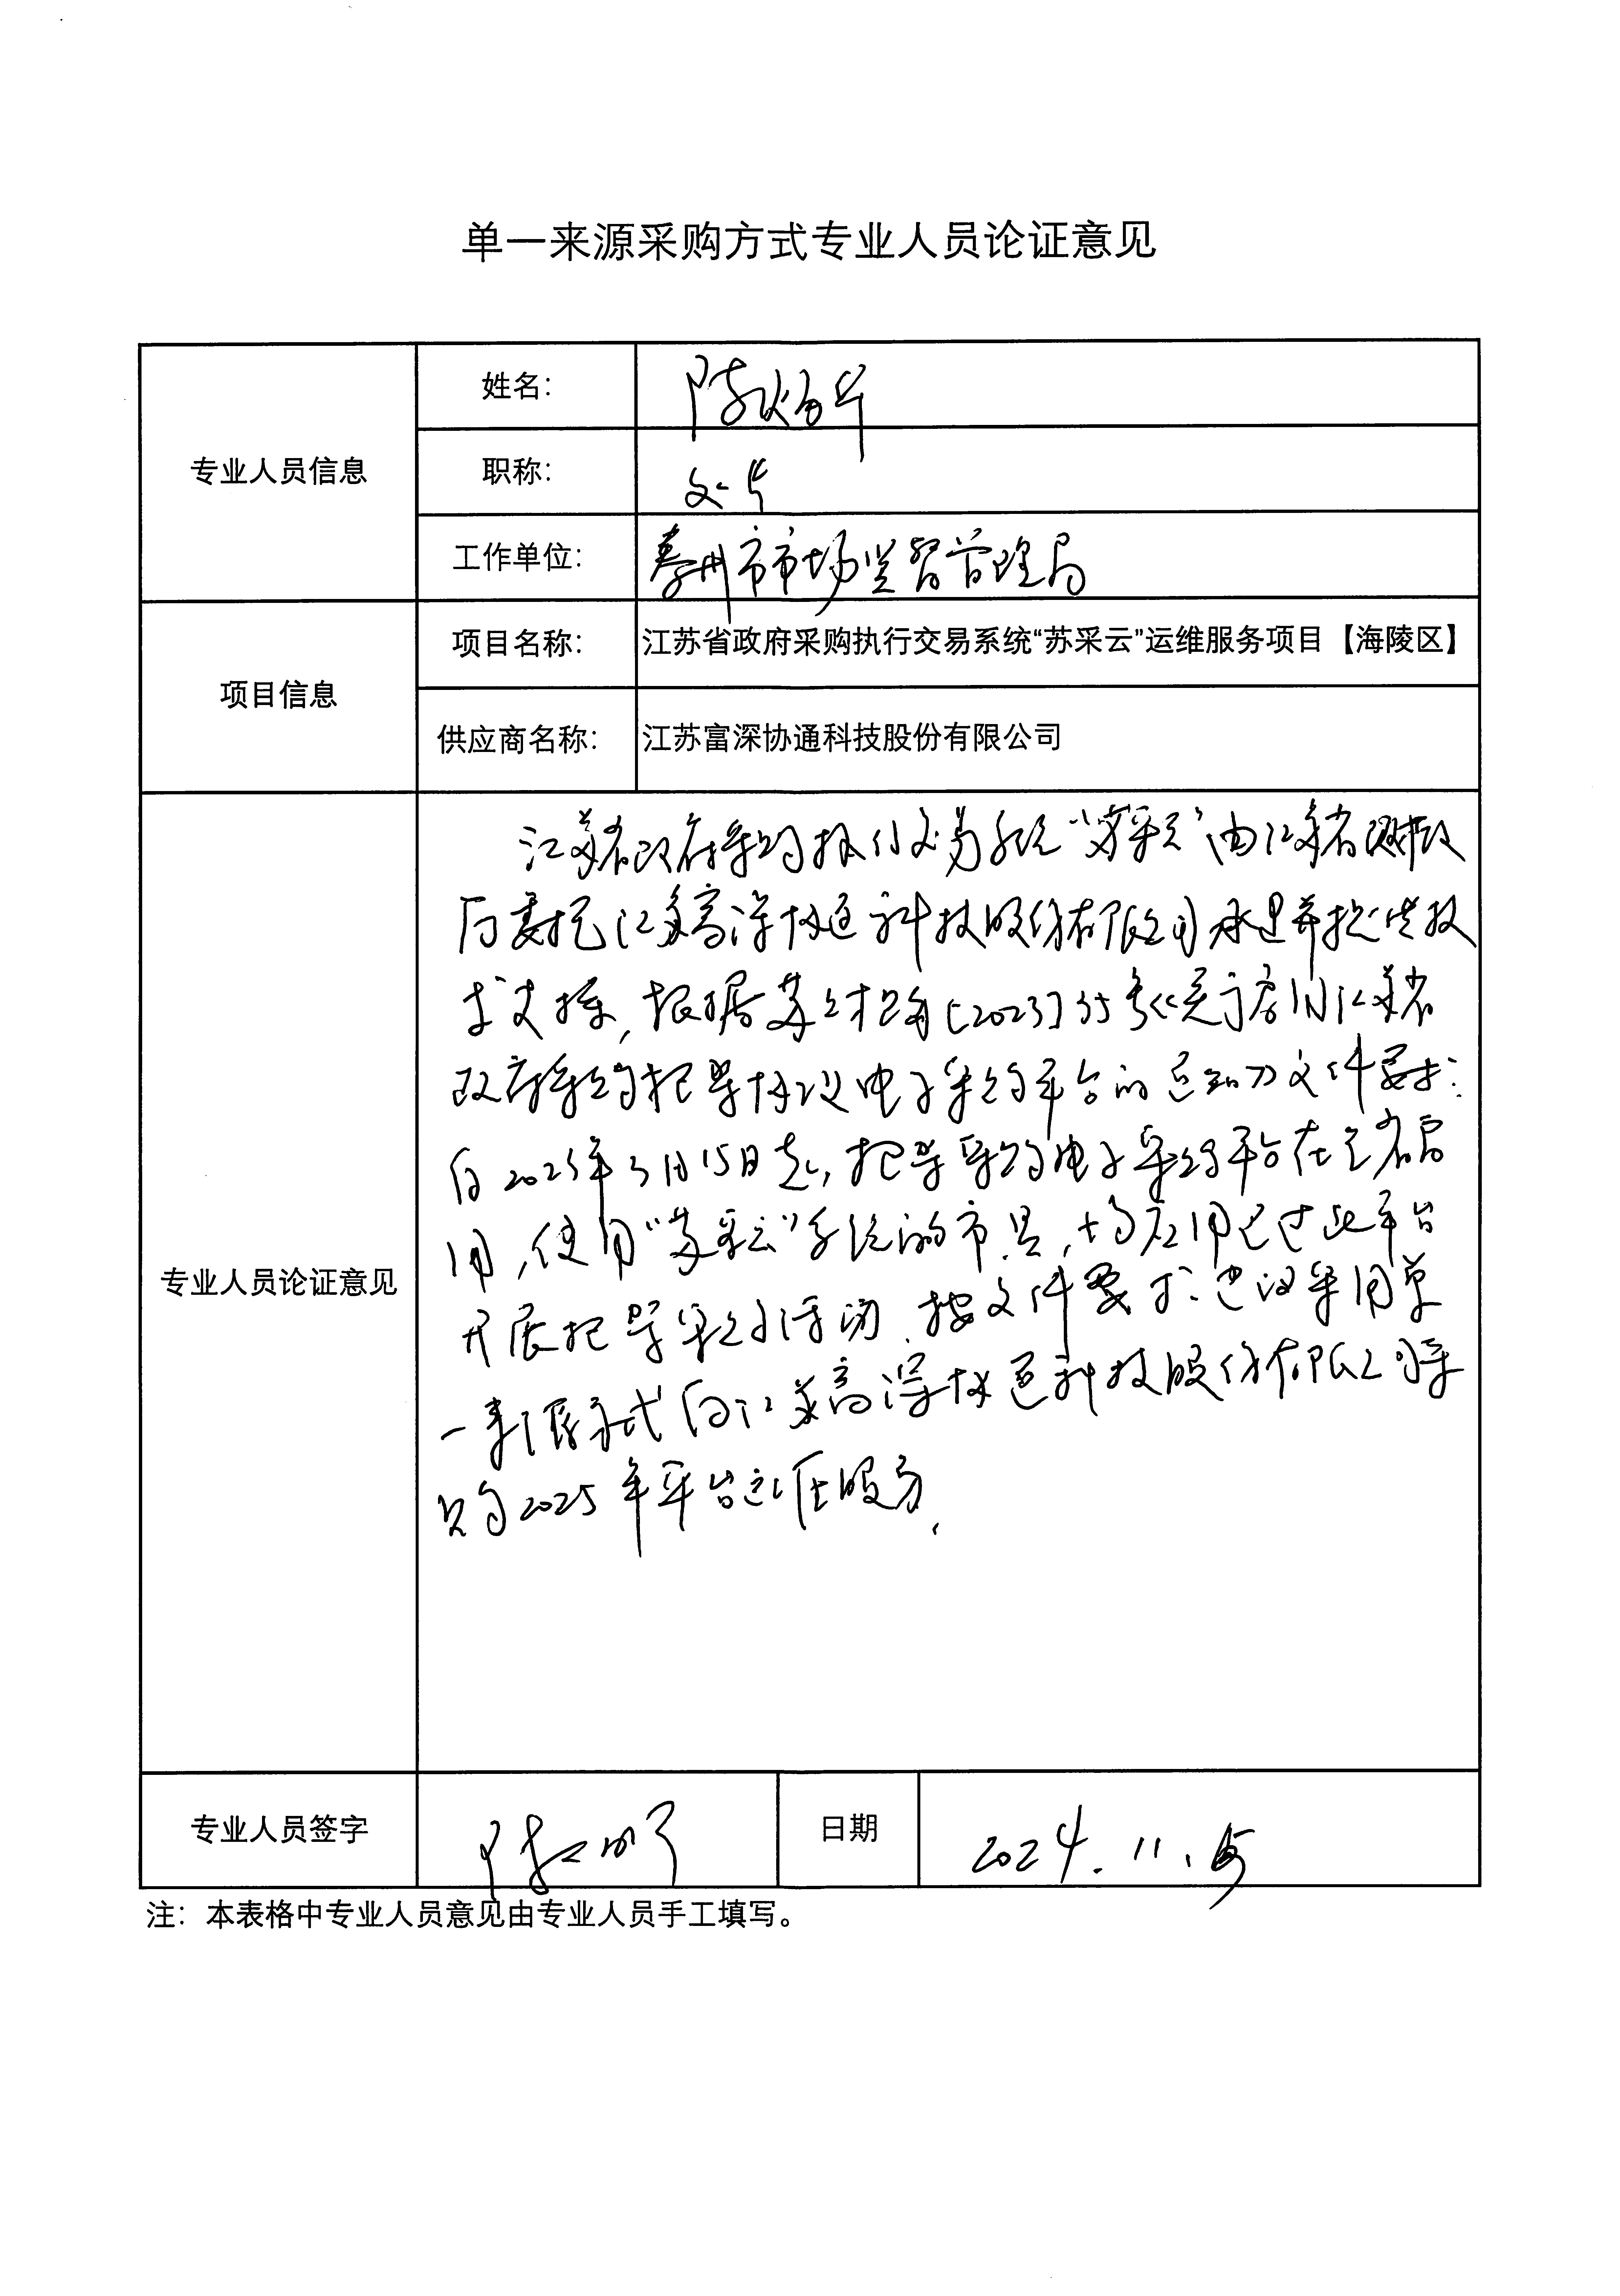 单一来源采购方式专业人员论证意见
专业人员信息
姓名:
陈
职称:
工作单位:
泰州市市场监督管理局
项目信息
项目名称:
江苏省政府采购执行交易系统“苏采云”运维服务项目【海陵区】
供应商名称:
江苏富深协通科技股份有限公司
专业人员论证意见
江苏省政府采购执行交易系统“苏采云”由江苏省财政
厅委托江苏富深协通科技股份有限公司承建并提供技
术支撑,根据苏财购[2023]35号《关于启用江苏省
政府采购框架协议电子采购平台的通知》文件要求:
自2023年3月15日起,框架采购电子采购平台在全省启
用,使用“苏采云”系统的市县,均应用通过此平台
开展框架采购活动.按文件要求:建议采用单
一来源方式向江苏富深协通科技股份有限公司采
购2025年平台运维服务.
专业人员签字
陈
日期
2024.11.
注:本表格中专业人员意见由专业人员手工填写。